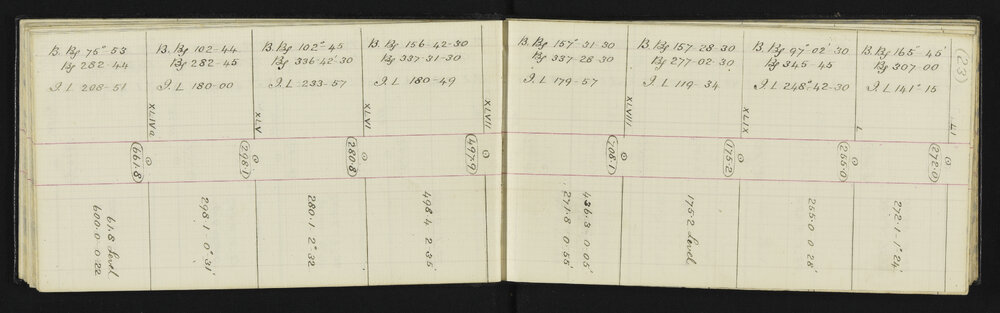 B. Bg 75°-53
Bg 282-44
I. L 208-51
B. Bg 102-44
Bg 282-45
I. L 180-00
B. Bg 102°-45
Bg 336-42-30
I. L 233-57
B. Bg 156-42-30
Bg 337-31-30
I. L 180-49
B. Bg 157°-31-30
Bg 337-28-30
I. L 179-57
B. Bg 157-28-30
Bg 277-02-30
I. L 119-34
B. Bg 97°-02'-30
Bg 345-45
I. L 248°-42-30
B. Bg 165°-45'
Bg 307-00
I. L 141°-15
(23)
XLIVa
XLV
XLVI
XLVII
XLVIII
XLIX
L
LI
661.8
298.1
280.8
497.9
708.1
175.2
255.0
272.0
61.8 Level
600.0-0.22
298.1-0°31'
280.1 2°32
498.4 2°35'
436.3 0°05'
271.8 0.55'
175.2 Level
255.0 0°28'
272.1-1°24'